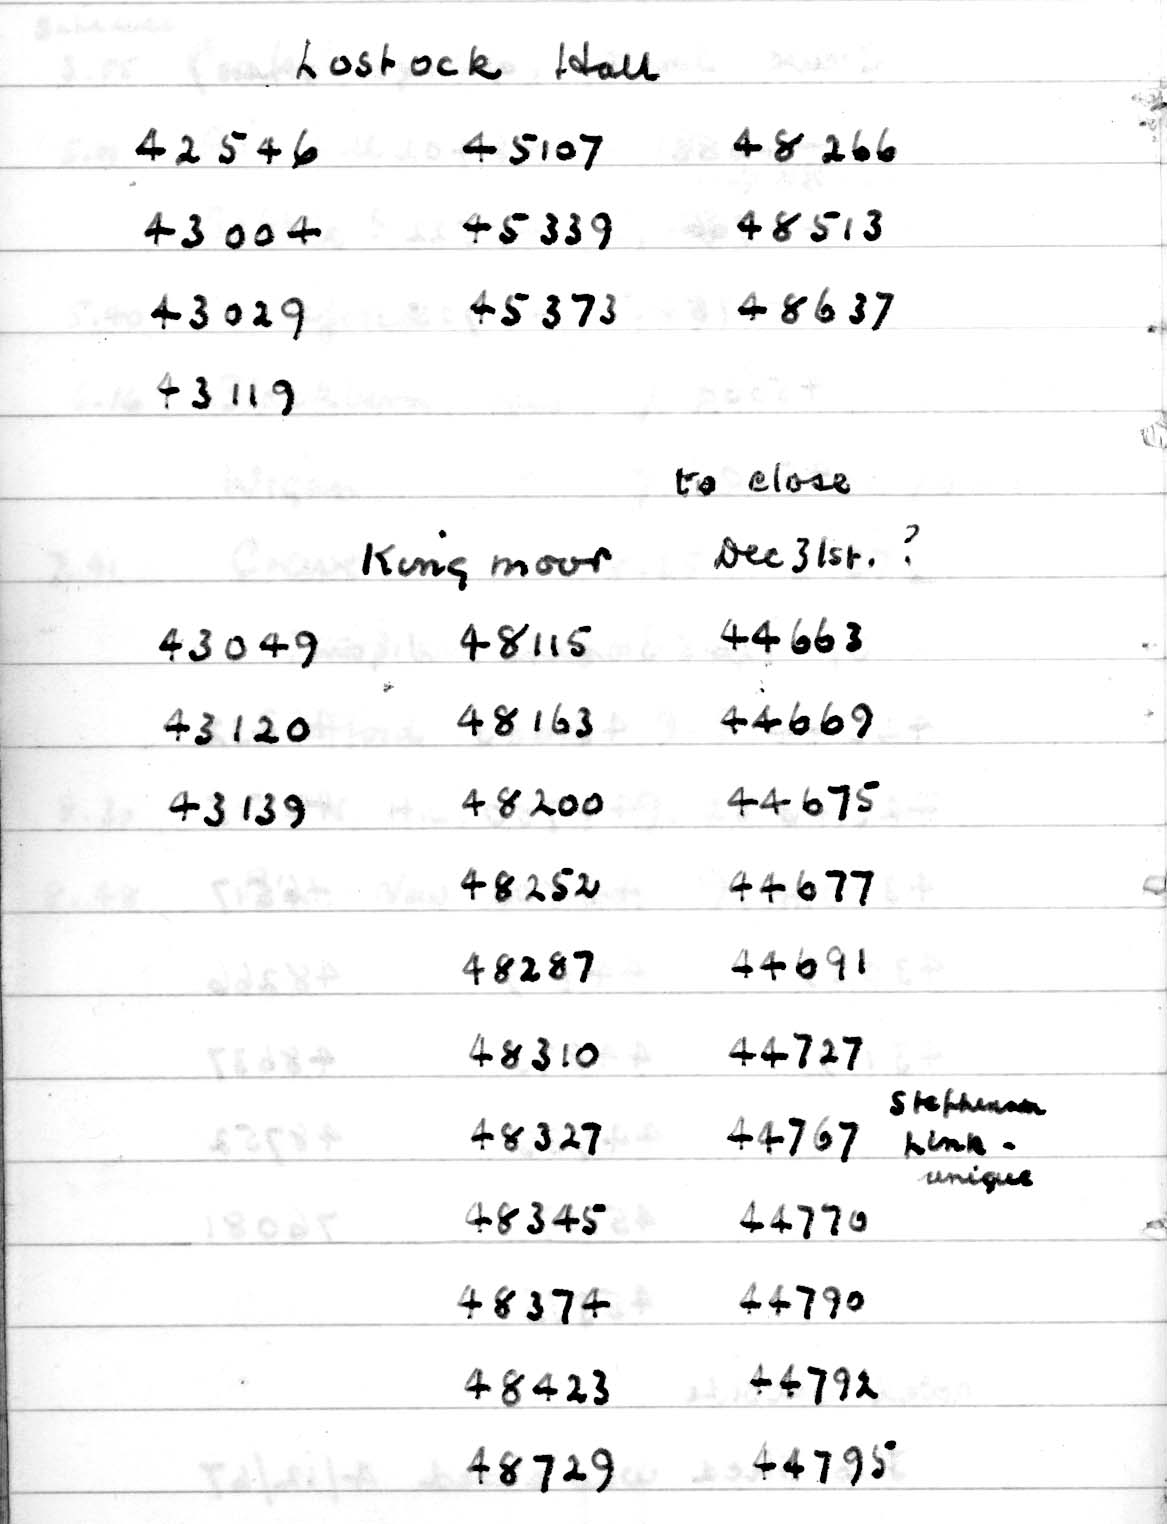 Lostock Hall
42546 45107 48266
43004 45339 48513
43029 45373 48637
43119
to close
Kingmoor Dec 31st. ?
43049 48115 44663
43120 48163 44669
43139 48200 44675
48252 44677
48287 44691
48310 44727
48327 44767 Stephenson
Link -
unique
48345 44770
48374 44790
48423 44792
48729 44795